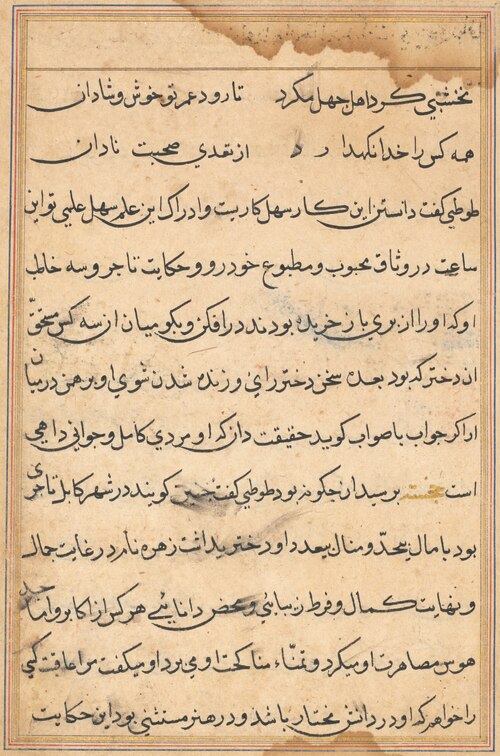 نخشبی کرد اهل جهل مکرد تا رود عمر تو خوش و شادان
همه کس را خدا نکهدارد از نقدی صحبت نادان
طوطی کفت دانستن این کار سهل کاریست و ادراک این علم سهل علمی تو این
ساعت در وثاق محبوب و مطبوع خود رو و حکایت تاجر و سه خالب
او که او را از پری باز خریده بودند درافکن و بکو میان ان سه کس مستحق
ان دختر که بود بعده سخن دختر رای و زنده شدن شوی او برهمن در میان
ار اکر جواب باصواب کوید حقیقت دان که او مردی کامل و جوانی داهی
است خجسته پرسید ان چکونه بود طوطی کفت چنین کویند در شهر کابل تاجری
بود با مال بیحد و منال بیعدد او دختری داشت زهره نام در غایت جمال
و نهایت کمال و فرط زیبائی و محض دانایی هر کس از اکابر و اماجد
هوس مصاهرت او میکرد و تمناء مناکحت او می برد او میکفت من عاقبت کسی
را خواهم که او در دانش مختار باشد و در هنر مستثنی بود این حکایت